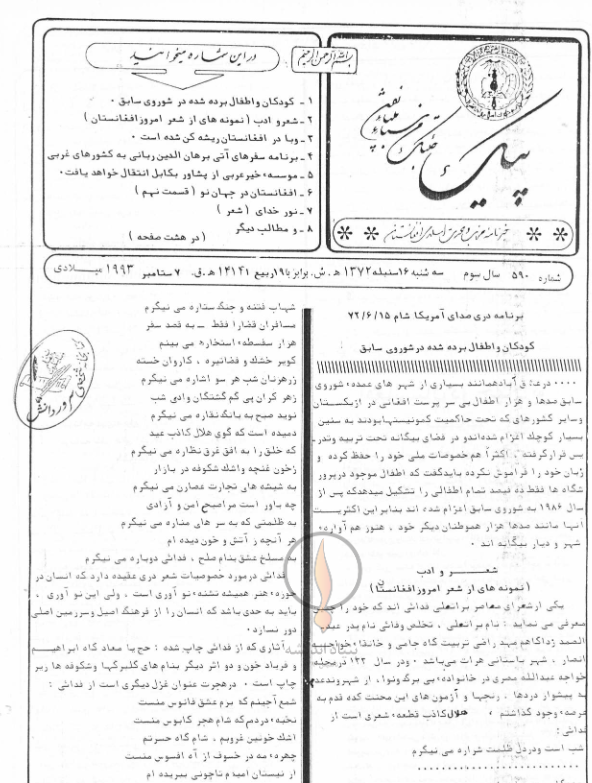 بسم الله الرحمن الرحیم
در این شماره میخوانید
۱ - کودکان واطفال برده شده در شوروی سابق ۰
۲ - شعرو ادب ( نمونه های از شعر امروز افغانستان )
۳ - وبا در افغانستان ریشه کن شده است ۰
۴ - برنامه سفرهای آتی برهان الدین ربانی به کشورهای غربی
۵ - موسسه خیرعربی از پشاور بکابل انتقال خواهد یافت۰
۶ - افغانستان در جهان نو ( قسمت نهم )
۷ - نور خدای ( شعر )
۸ - و مطالب دیگر
( در هشت صفحه )
پیک
شماره ۵۹۰ سال سوم سه شنبه ۱۶ سنبله ۱۳۷۲ ه.ش. برابر با ۱۹ ربیع ۱ ۱۴۱۴ ه.ق. ۷ سپتامبر ۱۹۹۳ میلادی
برنامه دری صدای آمریکا شام ۷۲/۶/۱۵
کودکان واطفال برده شده در شوروی سابق
همانند بسیاری از شهر های عمده شوروی
سابق صدها و هزار اطفال بی سر پرست افغانی در ازبکستان
وسایر کشورهای که تحت حاکمیت کمونیستها بودند به سنین
بسیار کوچک اعزام شده اندو در فضای بیگانه تحت تربیه وتدر
یس قرار گرفته ، اکثرا هم خصوصیات ملی خود را حفظ کرده و
زبان خود را فراموش نکرده باید گفت که اطفال موجود در پرور
شگاه ها فقط ده فیصد تمام اطفالی را تشکیل میدهد که پس از
سال ۱۹۸۶ به شوروی سابق اعزام شده اند بنابر این اکثریت
انها مانند صدها هزار هموطنان دیگر خود ، هنوز هم آواره
شهر و دیار بیگانه اند ۰
شعر و ادب
( نمونه های از شعر امروز افغانستان )
یکی از شعرای معاصر براتعلی فدائی اند که خود را چنین
معرفی می نماید : نام براتعلی ، تخلص فدائی نام پدر عبد
الصمد زادگاهم مهد راضی تربیت گاه جامی و خانقاه خواجه
انصار ، شهر باستانی هرات می باشد ۰ ودر سال
خواجه عبدالله مصری در خانواده بی برگ ونوا ، از شهروندعد
به پیشواز دردها ، رنجها و آزمون های این محنت کده قدم به
عرصه وجود گذاشتم ۰ هلال کاذب قطعه شعری است از
فدائی :
شب است ودر دل ظلمت شراره می نیگرم
شهاب فتنه و جنگ ستاره می نیگرم
مسافران قضا را فقط به قصد سفر
هزار سفسطه استخاره می بینم
کویر خشک و فضا تیره ، کاروان خسته
زرهزنان شب هر سو اشاره می نیگرم
زهر کران پی گم گشتگان وادی شب
نوید صبح به بانگ نقاره می نیگرم
دمیده است که گوی هلال کاذب عید
که خلق را به افق غرق نظاره می نیگرم
زخون غنچه واشک شکوفه در بازار
به شیشه های تجارت عصاره می نیگرم
چه باور است مراصبح امن و آزادی
به ظلمتی که به سر های مناره می نیگرم
هر آنچه ز آتش و خون دیده ام
به مسلخ عشق بنام صلح ، فدائی دوباره می نیگرم
فدائی در مورد خصوصیات شعر دری عقیده دارد که انسان در
حوزه هنر همیشه تشنه نو آوری است ، ولی این نو آوری
باید به حدی باشد که انسان را از فرهنگ اصیل وسرزمین اصلی
دور نسازد۰
آثاری که از فدائی چاپ شده : حج یا میعاد گاه ابراهیم
و فریاد خون و دو اثر دیگر بنام های گلبرگها وشکوفه ها زیر
چاپ است ۰ در هجرت عنوان غزل دیگری است از فدائی :
شمع آجینم که بزم عشق فانوس منست
نخبه دردم که شام هجر کابوس منست
اشک خونین غرویم ، شام گاه حسرتم
چهره مه در خسوف از آه افسوس منست
از نیستان امیدم تاچونی ببریده ام
سرور دانش
بنیاد اندیشه